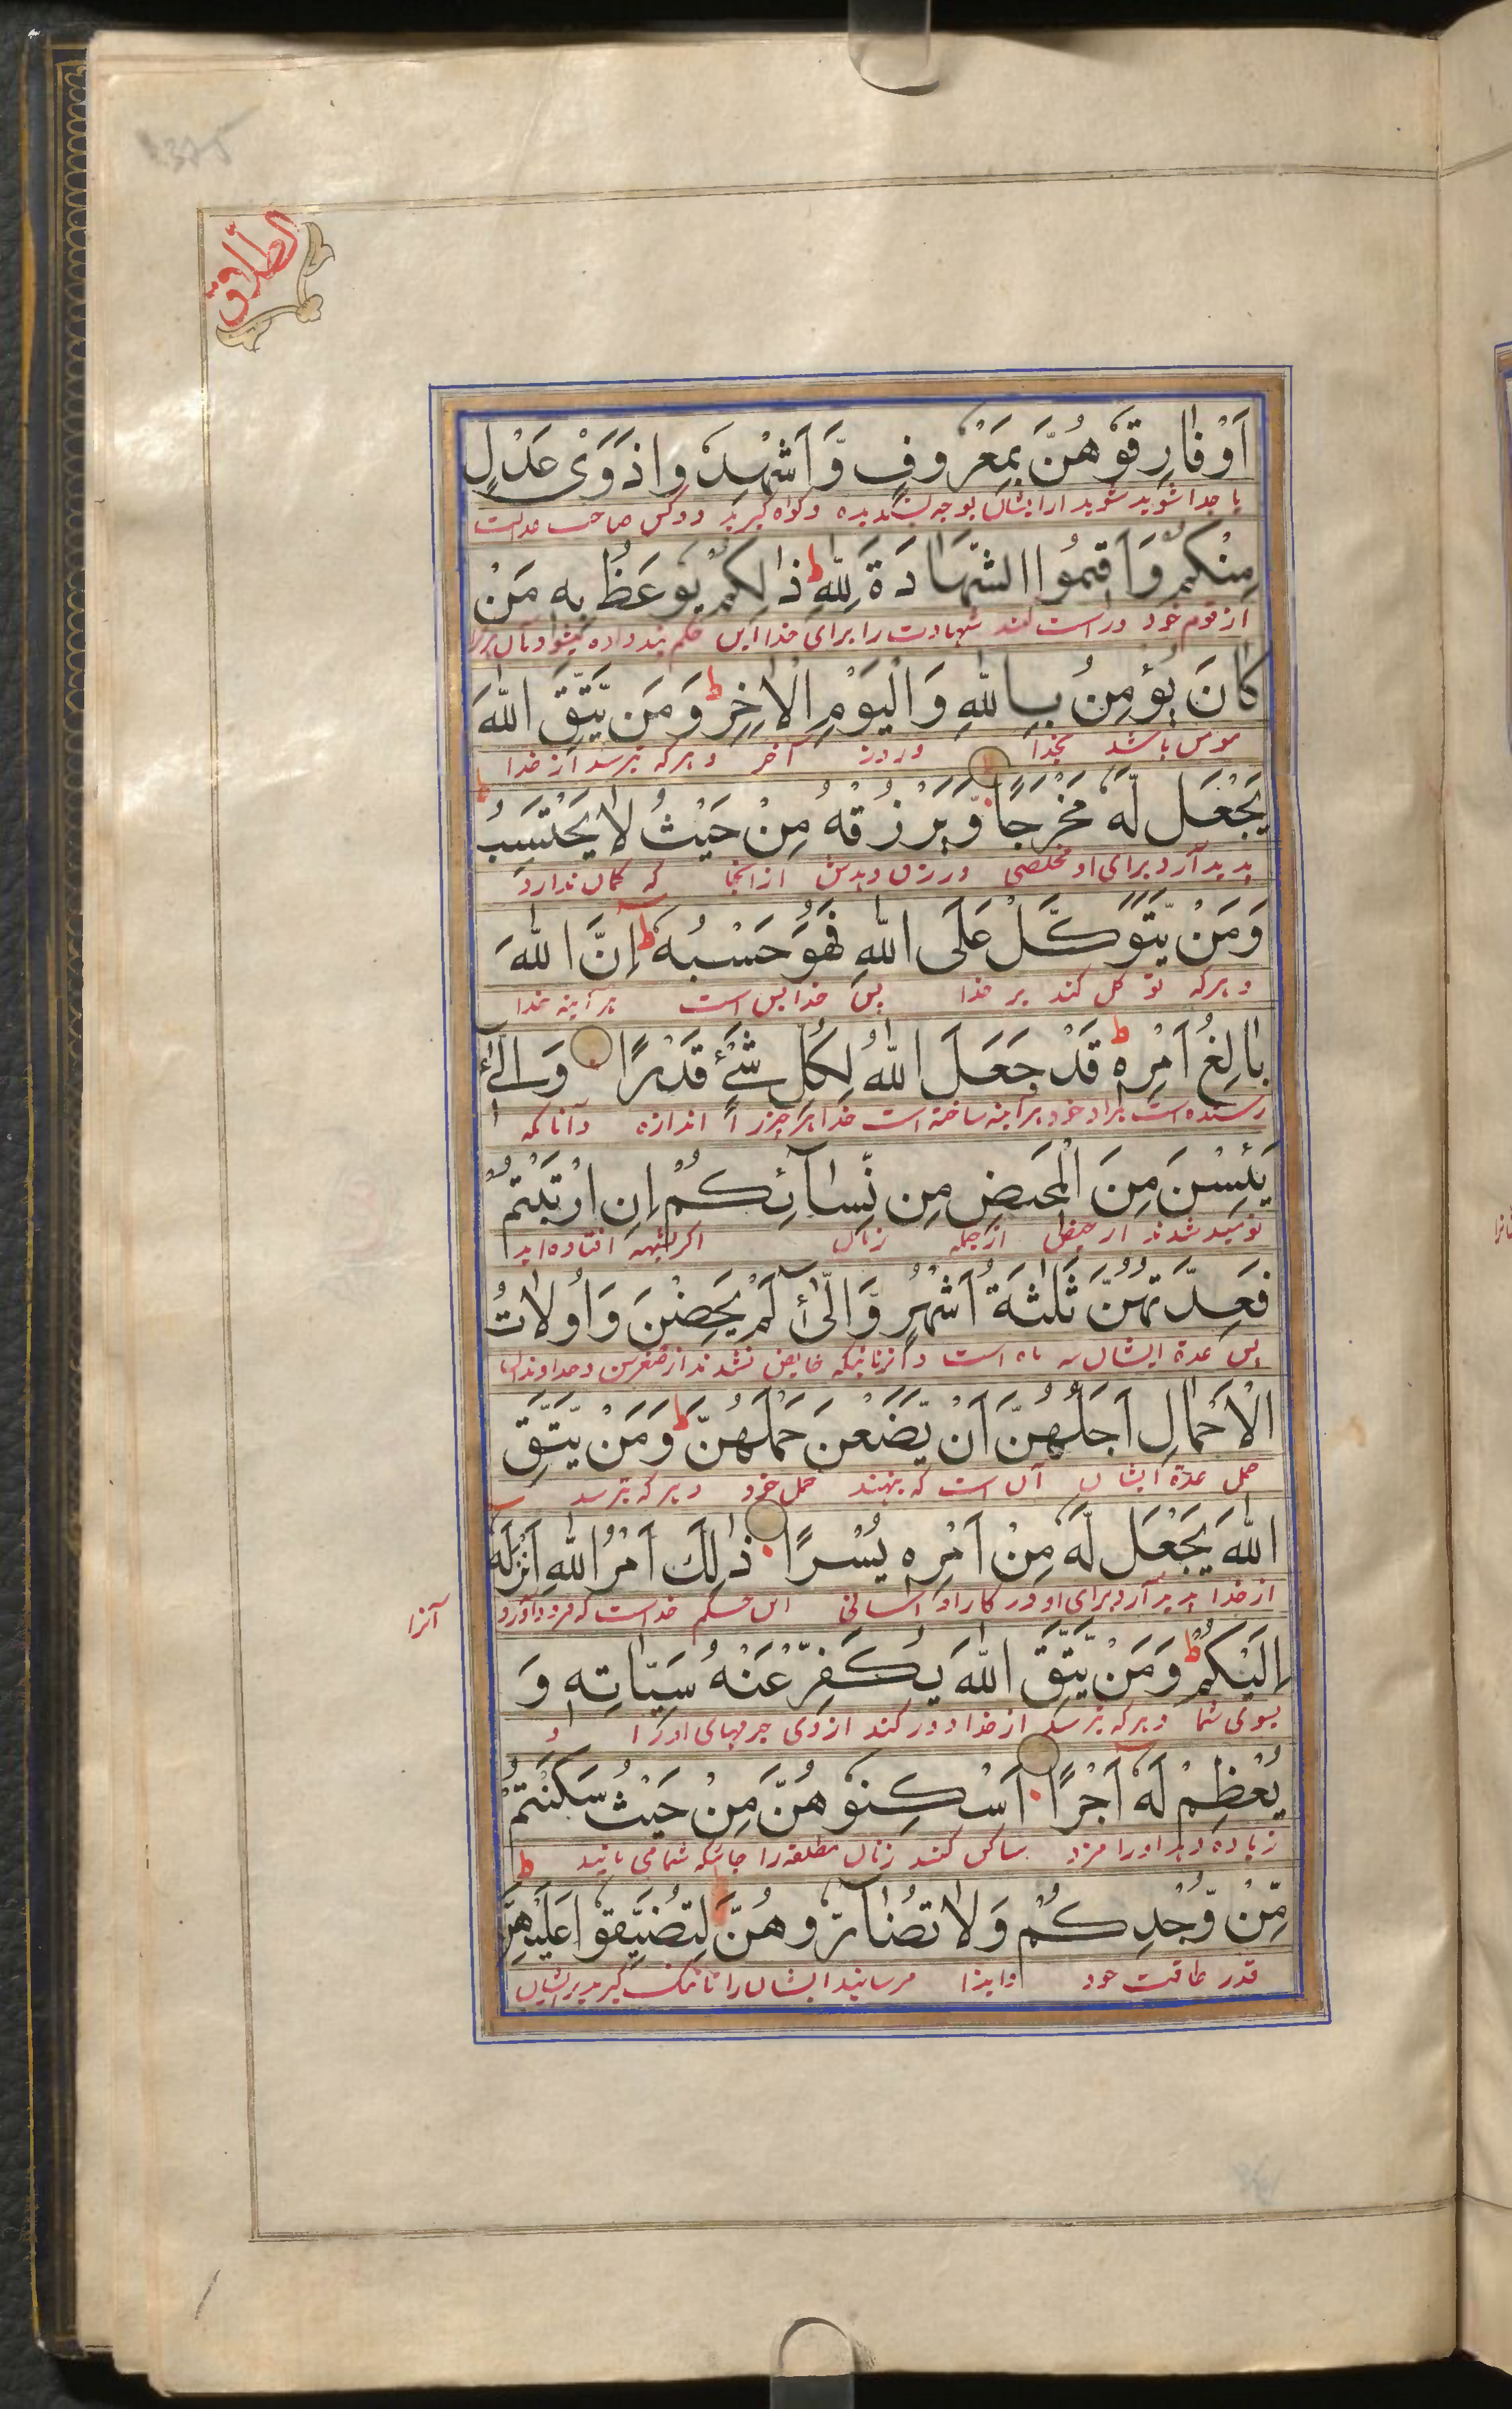 الطلاق
اَوْ فَارِقُوْهُنَّ بِمَعْرُوْفٍ وَّاَشْهِدُوْا ذَوَیْ عَدْلٍ
یا جدا شوید شوید از ایشان بوجه پسندیده وگواه گیرید دو کس صاحب عدالت
مِنْکُمْ وَاَقِیْمُوا الشَّهَادَةَ لِلّٰهِ ط ذٰلِکُمْ یُوْعَظُ بِهٖ مَنْ
از قوم خود وراست کنند شهادت را برای خدا این حکم پند داده میشود بآن
کَانَ یُؤْمِنُ بِاللّٰهِ وَالْیَوْمِ الْاٰخِرِ ط وَمَنْ یَّتَّقِ اللّٰهَ
مومن باشد بخدا وروز آخر وهرکه بترسد از خدا
یَجْعَلْ لَّهٗ مَخْرَجًا وَّیَرْزُقْهُ مِنْ حَیْثُ لَا یَحْتَسِبُ ط
پدید آرد برای او مخلصی ورزق دهدش ازانجا که گمان ندارد
وَمَنْ یَّتَوَکَّلْ عَلَی اللّٰهِ فَهُوَ حَسْبُهٗ ط اِنَّ اللّٰهَ
وهرکه توکل کند بر خدا پس خدا بس است هرآینه خدا
بَالِغُ اَمْرِهٖ ط قَدْ جَعَلَ اللّٰهُ لِکُلِّ شَیْءٍ قَدْرًا وَالّٰٓئِیْ
رسنده است بمراد خود هرآینه ساخته است خدا هر چیز را اندازه وآنانکه
یَئِسْنَ مِنَ الْمَحِیْضِ مِنْ نِّسَآئِکُمْ اِنِ ارْتَبْتُمْ
نومید شدند از حیض از جمله زنان اگر بشبهه افتاده اید
فَعِدَّتُهُنَّ ثَلٰثَةُ اَشْهُرٍ وَّالّٰٓئِیْ لَمْ یَحِضْنَ وَاُولَاتُ
پس عدة ایشان سه ماه است وآنزنانیکه حایض نشدند از صغرسن وخداوندان
الْاَحْمَالِ اَجَلُهُنَّ اَنْ یَّضَعْنَ حَمْلَهُنَّ ط وَمَنْ یَّتَّقِ
حمل عدة ایشان آن است که بنهند حمل خود وهرکه بترسد
اللّٰهَ یَجْعَلْ لَّهٗ مِنْ اَمْرِهٖ یُسْرًا ذٰلِكَ اَمْرُ اللّٰهِ اَنْزَلَهٗ
از خدا پدید آرد برای او در کار او آسانی این حکم خداست که فرود آورد آنرا
اِلَیْکُمْ ط وَمَنْ یَّتَّقِ اللّٰهَ یُکَفِّرْ عَنْهُ سَیِّاٰتِهٖ وَ
بسوی شما وهرکه بترسد از خدا دور کند از وی جرمهای او را و
یُعْظِمْ لَهٗٓ اَجْرًا اَسْکِنُوْهُنَّ مِنْ حَیْثُ سَکَنْتُمْ
زیاده دهد اورا مزد ساکن کنند زنان مطلقه را جائیکه شما می مانید
مِّنْ وُّجْدِکُمْ وَلَا تُضَآرُّوْهُنَّ لِتُضَیِّقُوْا عَلَیْهِنَّ ط
قدر طاقت خود وایذا مرسانید ایشان را تا تنگ گیرید بر ایشان